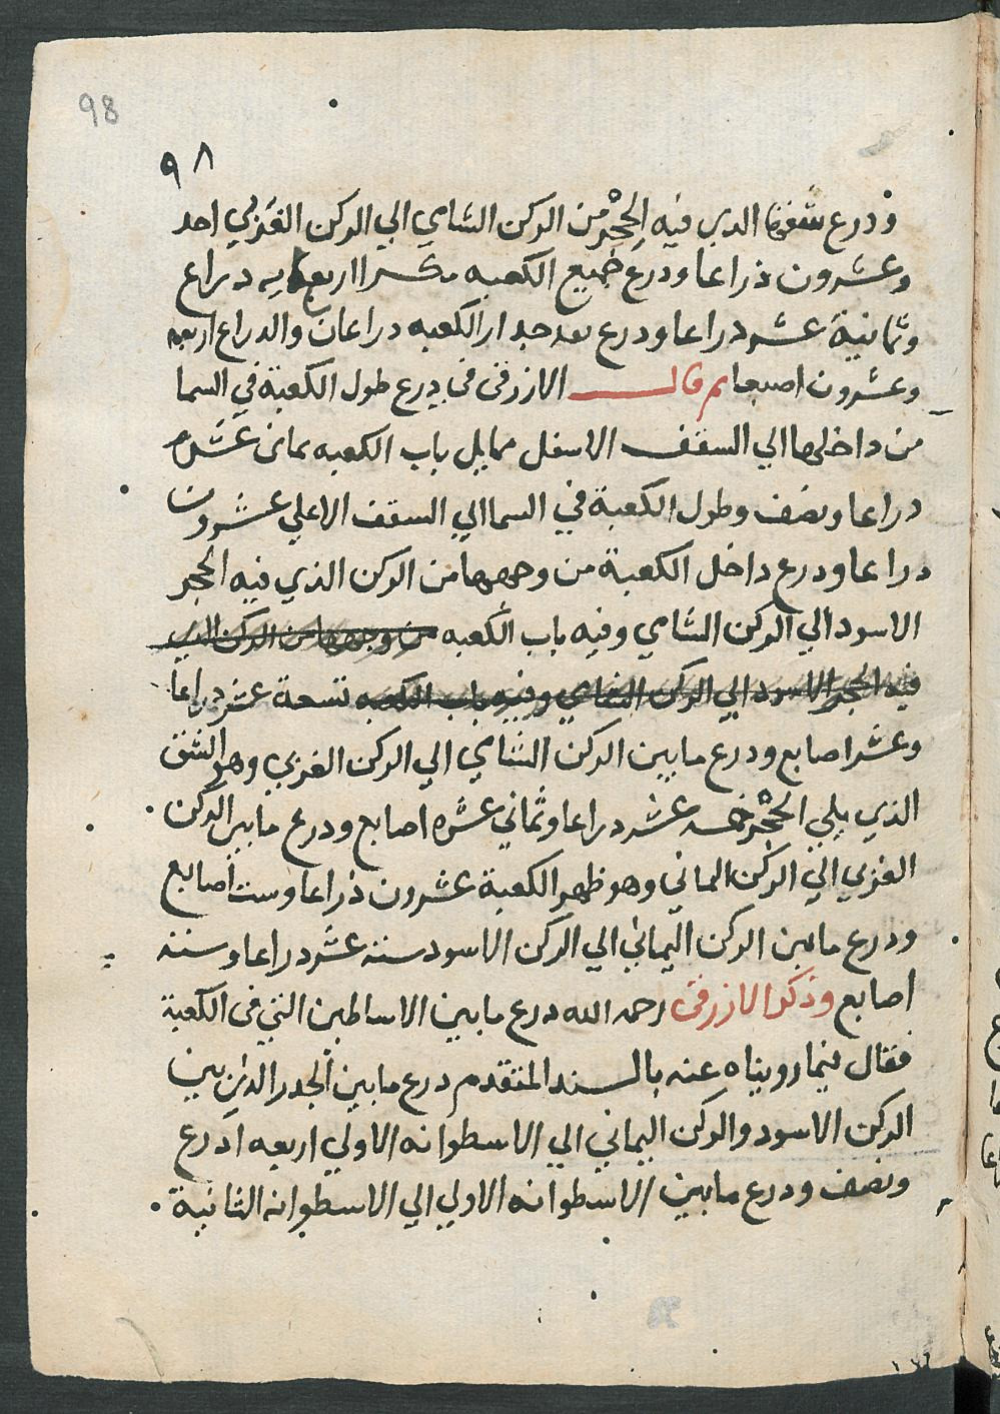 98
٩٨
وذرع شقها الدي فيه الحِجْر من الركن الشامي الي الركن الغَربي احد
وعشرون ذراعا ودرع جميع الكعبه مكسرا اربعمايه دراع
وثمانية عشر دراعا ودرع بعد جدار الكعبه دراعان والدراع اربعه
وعشرون اصبعا ثم قال الازرقى فى درع طول الكعبة في السما
من داخلها الي السقف الاسفل مما يلي باب الكعبه ثمانى عشره
دراعا ونصف وطول الكعبة في السما الي السقف الاعلي عشرون
دراعا ودرع داخل الكعبة من وجهها من الركن الذي فيه الحجر
الاسود الي الركن الشامي وفيه باب الكعبه من وجهها من الركن الذي
فيه الحجر الاسود الي الركن الشامي وفيه باب الكعبه تسعة عشر دراعا
وعشر اصابع ودرع ما بين الركن الشامي الي الركن الغربي وهو الشق
الذي يلي الحِجْر خمسه عشر دراعا وثماني عشره اصابع ودرع ما بين الركن
الغربي الي الركن اليماني وهو ظهر الكعبة عشرون ذراعا وست اصابع
ودرع ما بين الركن اليماني الي الركن الاسود ستة عشر دراعا وستة
اصابع وذكر الازرقى رحمه الله درع ما بين الاساطين التي فى الكعبة
فقال فيما رويناه عنه بالسند المتقدم درع ما بين الجدر الذي بين
الركن الاسود والركن اليماني الي الاسطوانه الاولي اربعه اذرع
ونصف ودرع ما بين الاسطوانه الاولي الي الاسطوانه الثانية